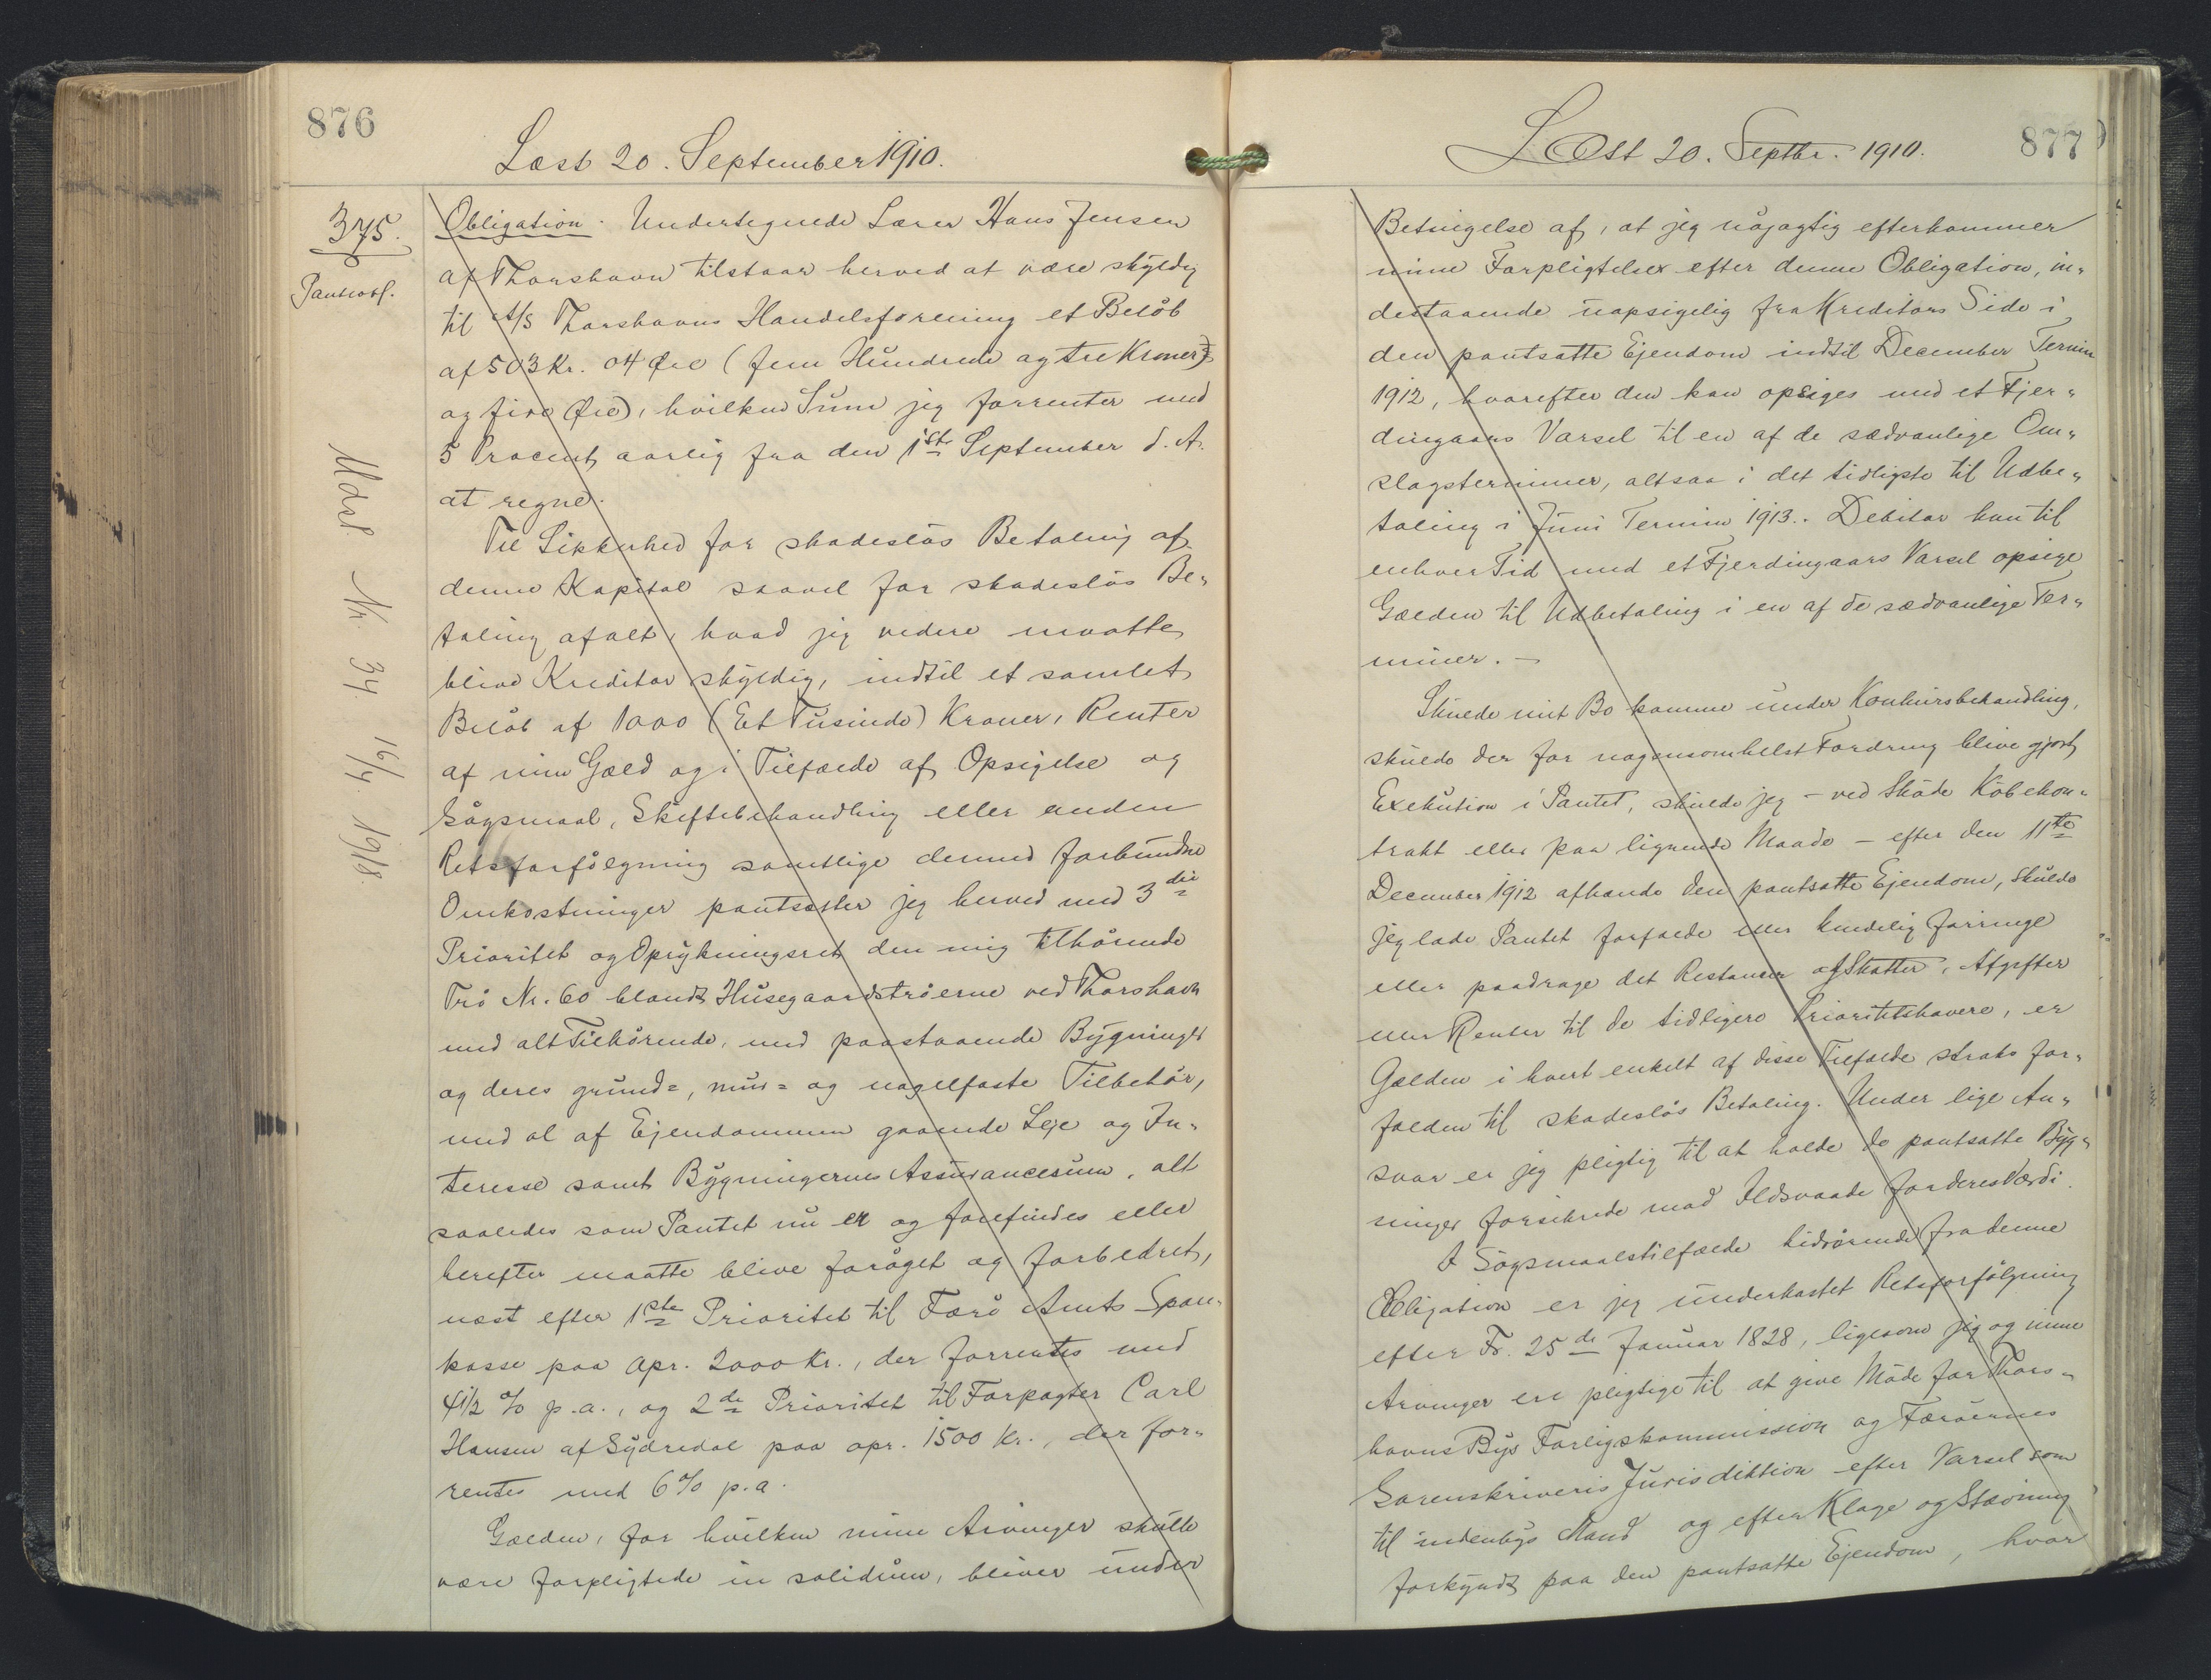 876
Læst 20. September 1910.
375.
Panteobl.
Udsl. Nr. 34. 16/4. 1918.
Obligation. Undertegnede Lærer Hans Jensen
af Thorshavn tilstaar herved at være skyldig
til A/S Thorshavns Handelsforening et Beløb
af 503 Kr. 04 Øre (fem Hundrede og tre Kroner
og fire Øre), hvilken Sum jeg forrenter med
5 Procent aarlig fra den 1ste September d. A.
at regne.
Til Sikkerhed for skadesløs Betaling af
denne Kapital saavel for skadesløs Be-
taling af alt, hvad jeg videre maatte
blive Kreditor skyldig, indtil et samlet
Beløb af 1000 (Et Tusinde) Kroner, Renter
af min Gæld og i Tilfælde af Opsigelse og
Søgsmaal, Skiftebehandling eller anden
Retsforfølgning samtlige dermed forbundne
Omkostninger pantsætter jeg herved med 3die
Prioritet og Oprykningsret den mig tilhørende
Trö Nr. 60 blandt Husegaardstrøerne ved Thorshavn
med alt Tilhørende, med paastaaende Bygninger
og deres grund=, mur= og nagelfaste Tilbehør,
med al af Ejendommen gaaende Leje og In-
teresse samt Bygningernes Assurancesum, alt
saaledes som Pantet nu er og forefindes eller
herefter maatte blive forøget og forbedret,
næst efter 1ste Prioritet til Færø Amts Spare-
kasse paa opr. 2000 Kr., der forrentes med
4 1/2 % p.a., og 2de Prioritet til Forpagter Carl
Hansen af Sydredal paa opr. 1500 Kr., der for-
rentes med 6% p.a.
Gælden, for hvilken mine Arvinger skulle
være forpligtede in solidum, bliver under
Læst 20. Septbr. 1910.
877
Betingelse af, at jeg nøjagtig efterkommer
mine Forpligtelser efter denne Obligation, in-
destaaende uopsigelig fra Kreditors Side i
den pantsatte Ejendom indtil December Termin
1912, hvorefter den kan opsiges med et Fjer-
dingaars Varsel til en af de sædvanlige Om-
slagsterminer, altsaa i det tidligste til Udbe-
taling i Juni Termin 1913. Debitor kan til
enhver Tid med et Fjerdingaars Varsel opsige
Gælden til Udbetaling i en af de sædvanlige Ter-
miner. —
Skulde mit Bo komme under Konkursbehandling,
skulde der for nogensomhelst Fordring blive gjort
Exekution i Pantet, skulde jeg — ved Skøde Købekon-
trakt eller paa lignende Maade — efter den 11te
December 1912 afhænde den pantsatte Ejendom, skulde
jeg lade Pantet forfalde eller kendelig forringe
eller paadrage det Restancer af Skatter, Afgifter
eller Renter til de tidligere Prioritetshavere, er
Gælden i hvert enkelt af disse Tilfælde straks for-
falden til skadesløs Betaling. Under lige An-
svar er jeg pligtig til at holde de pantsatte Byg-
ninger forsikrede mod Ildsvaade for deres Værdi.
I Søgsmaalstilfælde hidrørende fra denne
Obligation er jeg underkastet Retsforfølgning
efter Fr. 25de Januar 1828, ligesom jeg og mine
Arvinger ere pligtige til at give Møde for Thors-
havns Bys Forligskommission og Færøernes
Sorenskriveris Jurisdiktion efter Varsel som
til indenbys Mand og efter Klage og Stævning
forkyndt paa den pantsatte Ejendom, hvor